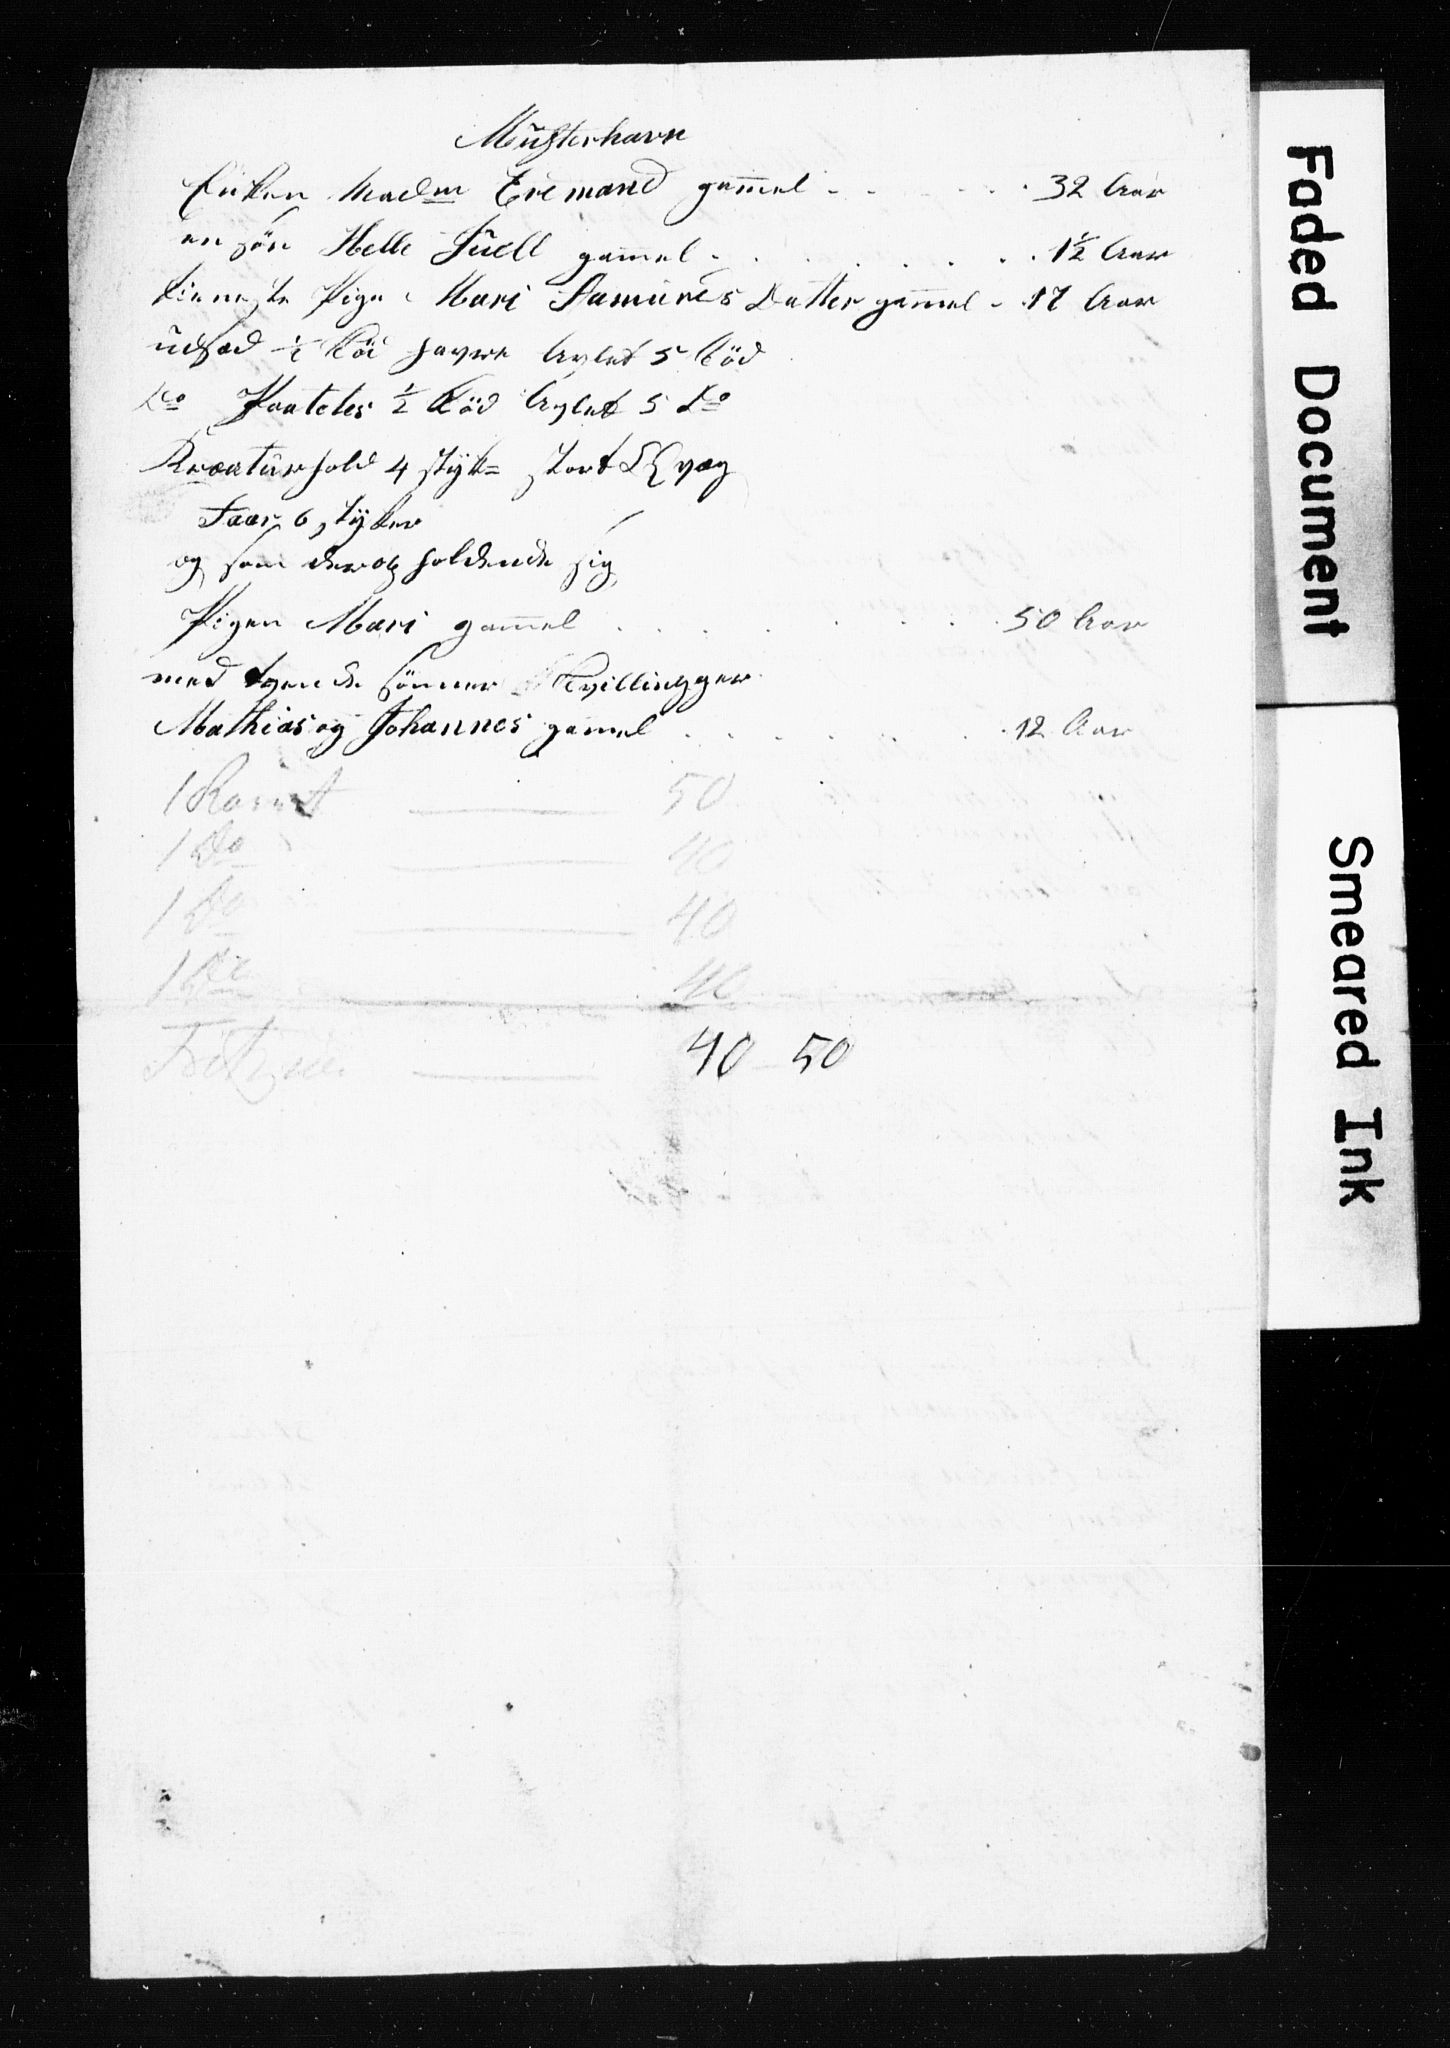 Musterhavn
Enken Madm Eremand gammel - . . . . 32 Aar
en søn Helle Juell gammel . . . . . . . 1½ Aar
tieneste Pige Mari Samuels Datter gammel - 17 Aar
udsæd ½ Töd havre Avlet 5 Töd
Do Poateter ½ Töd Avlet 5 Do
Kreaturhold 4 styk= stort Qvæg
Faar 6 styker
og som der op holdende sig
Pigen Mari gammel . . . . . . . 50 Aar
med tvende sönner Tvillingger
Mathias og Johannes gamel . . . . . . 12 Aar
1 50
1 Do 40
1 Do 40
1 Do 40
40 - 50
Faded Document
Smeared Ink